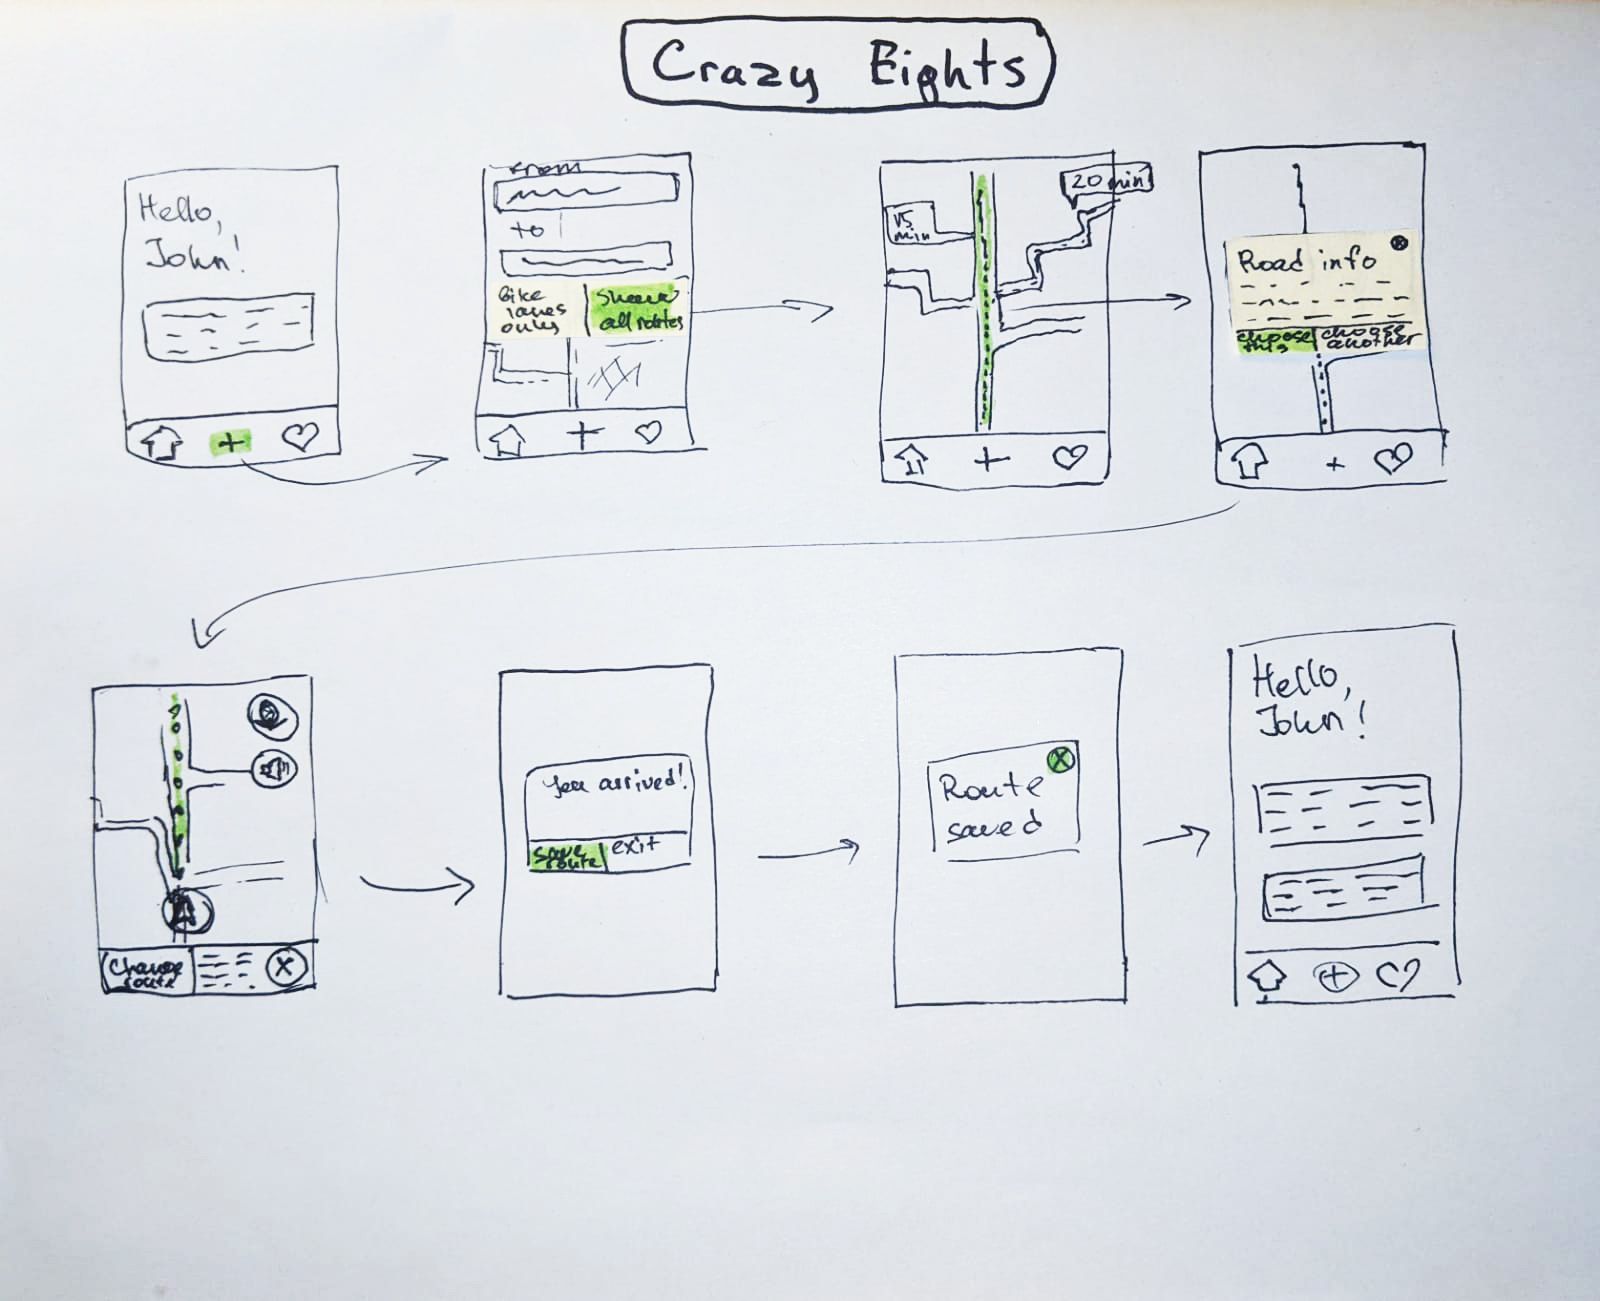 Crazy Eights
Hello,
John!
from
to
Bike
lanes
only
Show
all routes
15
min
20 min
Road info
choose
this
choose
another
Change
route
You arrived!
save
route
exit
Route
saved
Hello,
John!